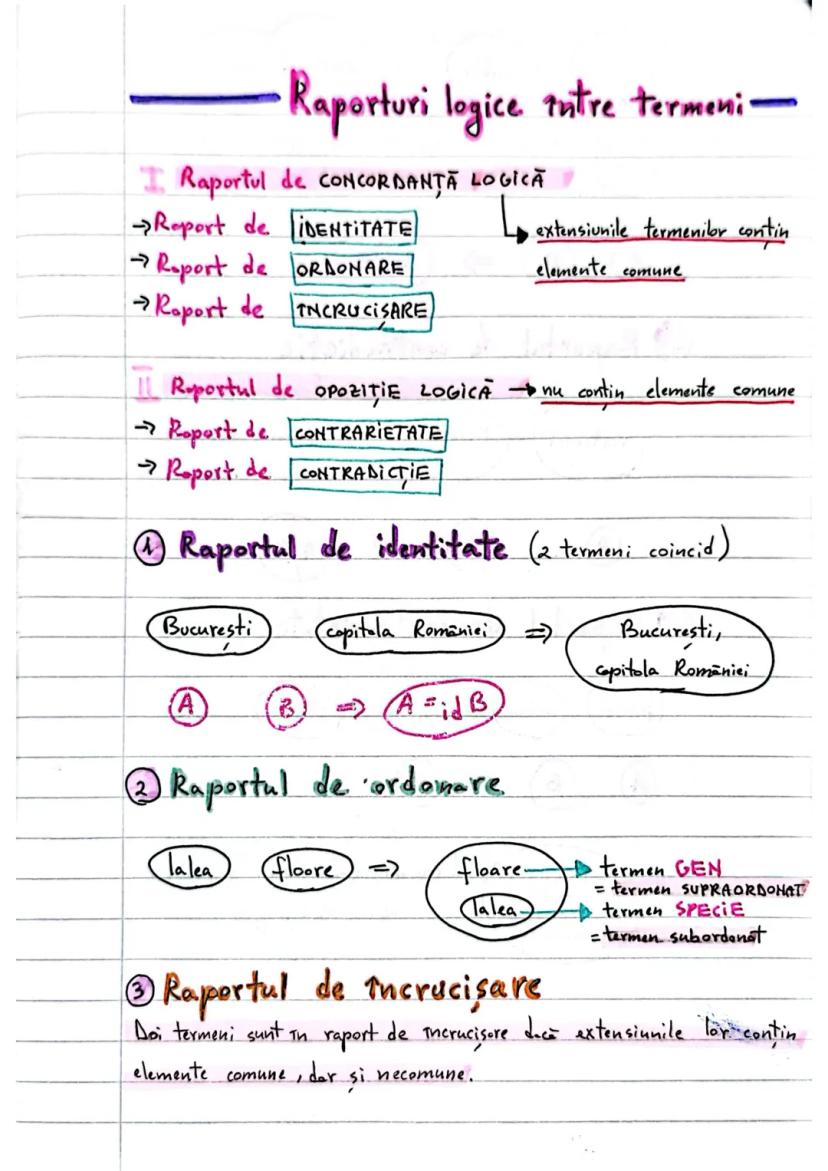 Raporturi logice între termeni
I Raportul de CONCORDANȚĂ LOGICĂ
→ Raport de IDENTITATE
→ extensiunile termenilor conțin
→ Raport de ORDONARE
elemente comune
→ Raport de ÎNCRUCIȘARE
II Raportul de OPOZIȚIE LOGICĂ → nu conțin elemente comune
→ Raport de CONTRARIETATE
→ Raport de CONTRADICȚIE
1 Raportul de identitate (2 termeni coincid)
București capitala României => București,
capitala României
A B => A =id B
2 Raportul de ordonare
lalea floare => floare → termen GEN
= termen SUPRAORDONAT
lalea → termen SPECIE
= termen subordonat
3 Raportul de încrucișare
Doi termeni sunt în raport de încrucișare dacă extensiunile lor conțin
elemente comune, dar și necomune.